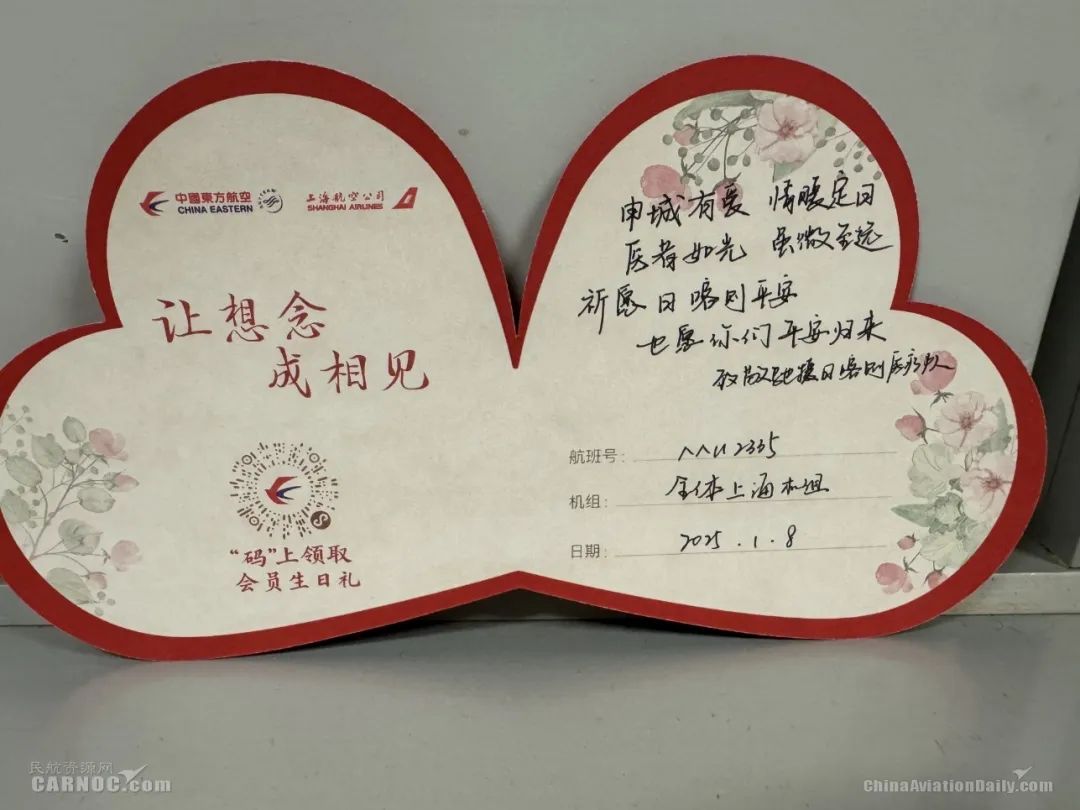 中國東方航空
CHINA EASTERN
上海航空公司
SHANGHAI AIRLINES
让想念
成相见
“码”上领取
会员生日礼
申城有爱 情暖定日
医者如光 虽微至远
祈愿日喀则平安
也愿你们平安归来
致敬驰援日喀则医疗队
航班号: MU2335
机组: 全体上海机组
日期: 2025.1.8
民航资源网
CARNOC.com
ChinaAviationDaily.com